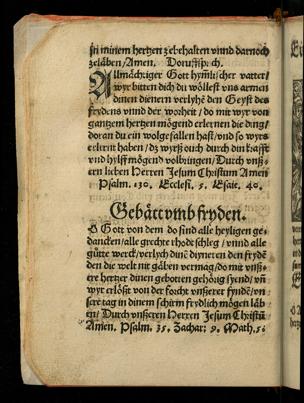 in minem hertzen zebehalten vnnd darnoch
zeläben/Amen. Doruff sp:ich.
Allmächtiger Gott hymlischer vatter/
wyr bitten dich du wöllest vns armen
dinen dienern verlyhē den Geyst des
frydens vnnd der worheit / do mit wyr von
gantzem hertzen mögend erlernen die ding/
doran du ein wolgefallen hast/vnd so wyrs
erlernt haben / dz wyrß ouch durch din krafft
vnd hylff mögend volbringen/Durch vnß-
ern lieben Herren Jesum Christum Amen
Psalm. 130. Ecclesi. 5. Esaie. 40.
Gebätt vmb fryden.
O Gott von dem do sind alle heyligen ge-
dancken/alle grechte rhodtschleg / vnnd alle
gütte werck/verlych dinē dyneren den frydē
den die welt nit gäben vermag/do mit vnß-
ere hertzer dinen gebotten gehörig syend/ vñ
wyr erlößt von der forcht vnßerer fyndē/vn-
sere tag in dinem schirm frydlich mögen läb-
en/ Durch vnßeren Herren Jesum Christū
Amen. Psalm. 35. Zachar: 9. Math. 5.